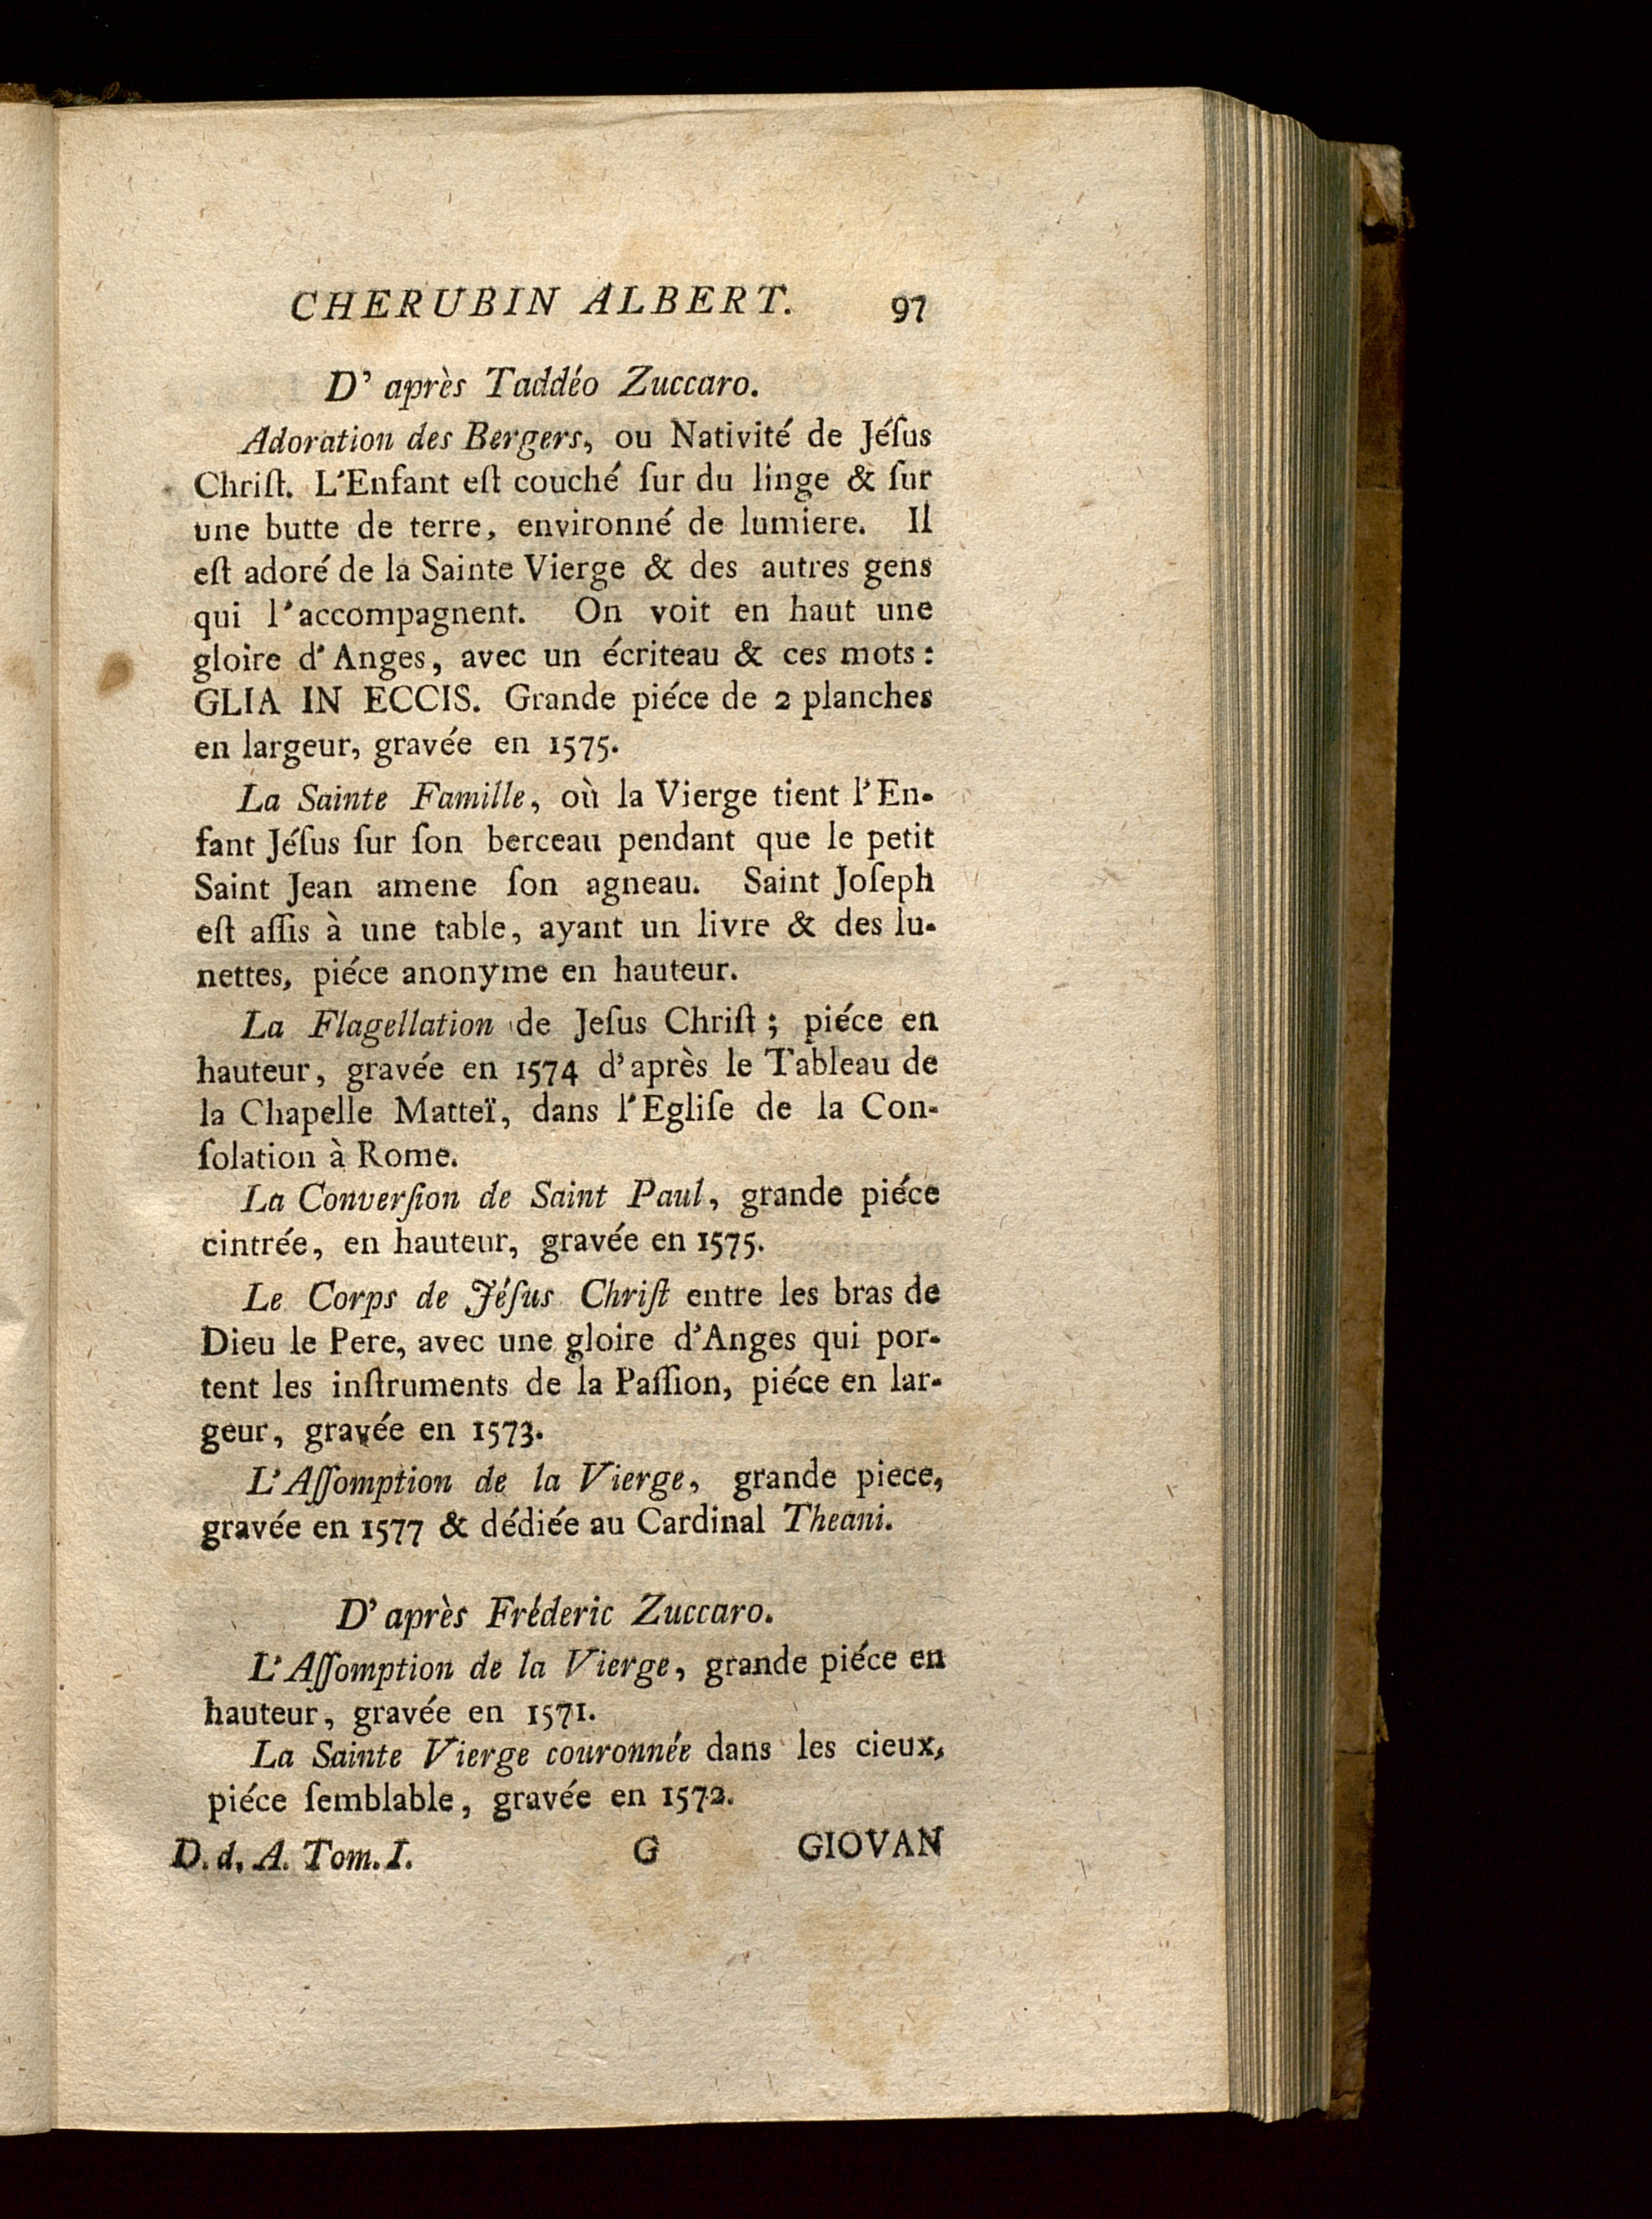 CHERUBIN ALBERT. 97
D' après Taddéo Zuccaro.
Adoration des Bergers, ou Nativité de Jéſus
Chriſt. L'Enfant eſt couché ſur du linge & ſur
une butte de terre, environné de lumiere. Il
eſt adoré de la Sainte Vierge & des autres gens
qui l'accompagnent. On voit en haut une
gloire d'Anges, avec un écriteau & ces mots:
GLIA IN ECCIS. Grande piéce de 2 planches
en largeur, gravée en 1575.
La Sainte Famille, où la Vierge tient l'En-
fant Jéſus ſur ſon berceau pendant que le petit
Saint Jean amene ſon agneau. Saint Joſeph
eſt aſſis à une table, ayant un livre & des lu-
nettes, piéce anonyme en hauteur.
La Flagellation de Jeſus Chriſt; piéce en
hauteur, gravée en 1574 d'après le Tableau de
la Chapelle Matteï, dans l'Egliſe de la Con-
ſolation à Rome.
La Converſion de Saint Paul, grande piéce
cintrée, en hauteur, gravée en 1575.
Le Corps de Jéſus Chriſt entre les bras de
Dieu le Pere, avec une gloire d'Anges qui por-
tent les inſtruments de la Paſſion, piéce en lar-
geur, gravée en 1573.
L'Aſſomption de la Vierge, grande piece,
gravée en 1577 & dédiée au Cardinal Theani.
D'après Fréderic Zuccaro.
L'Aſſomption de la Vierge, grande piéce en
hauteur, gravée en 1571.
La Sainte Vierge couronnée dans les cieux,
piéce ſemblable, gravée en 1572.
D. d. A. Tom. I. G GIOVAN